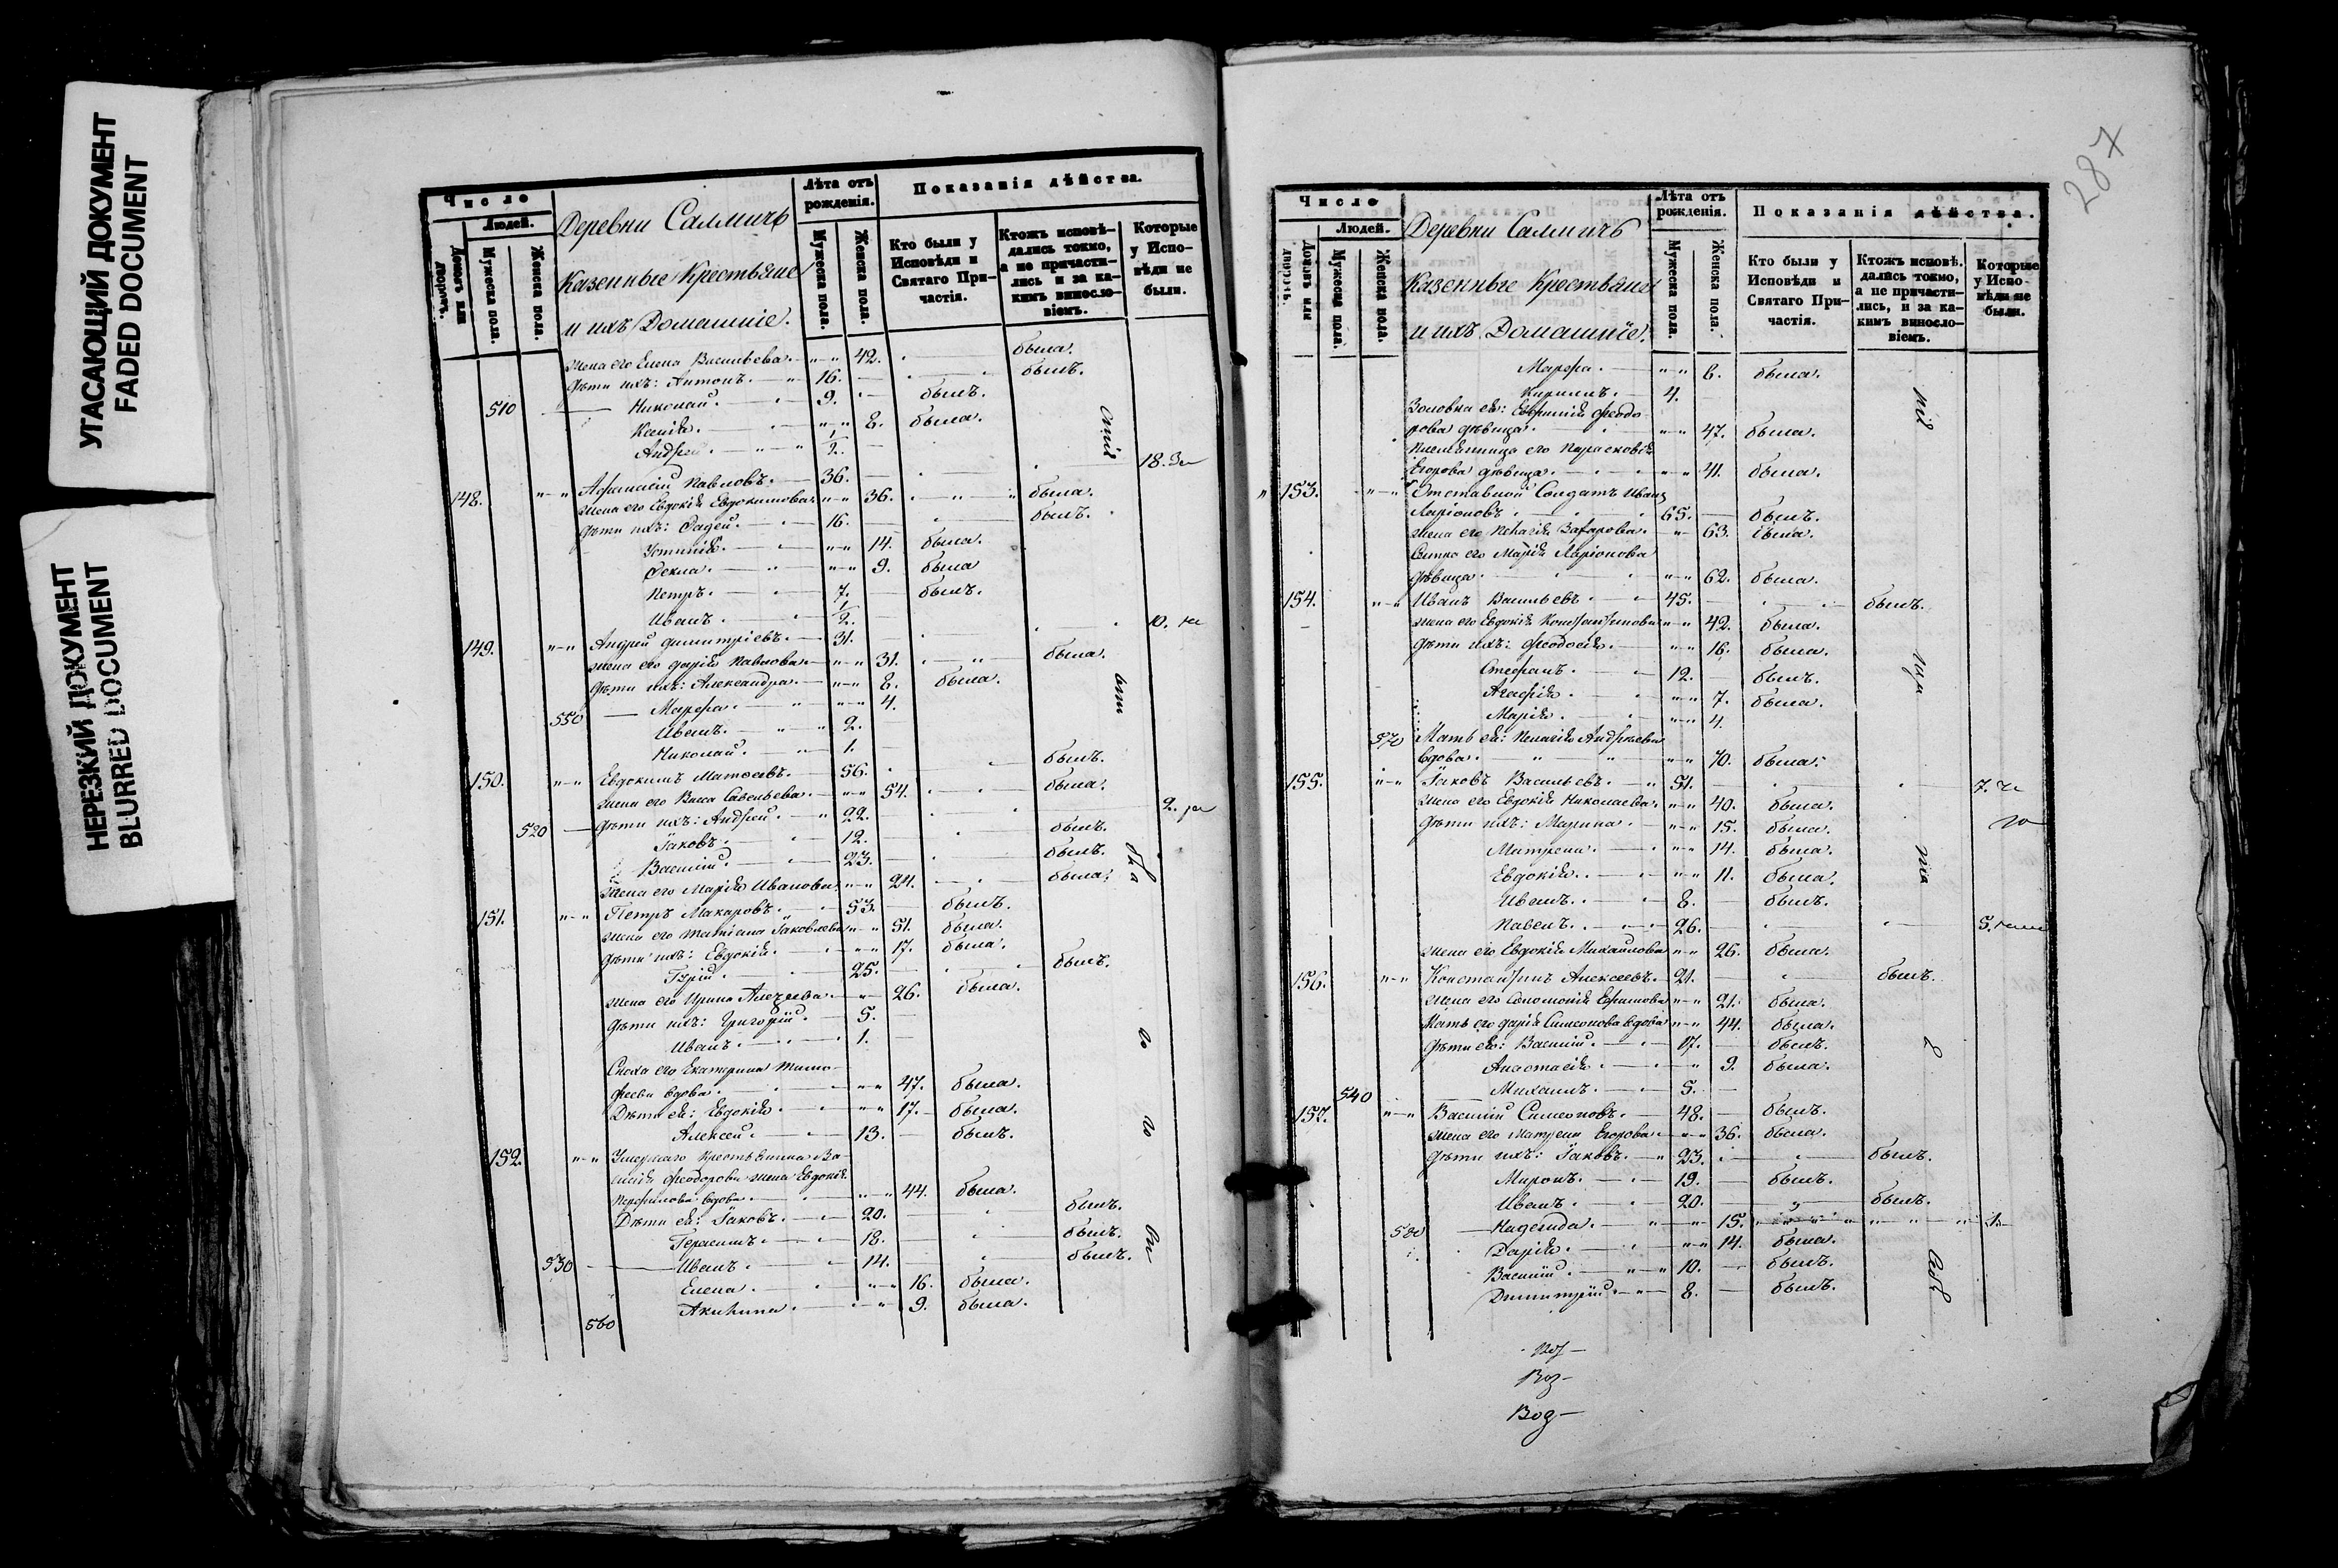 УГАСАЮЩИЙ ДОКУМЕНТ
FADED DOCUMENT
НЕРЕЗКИЙ ДОКУМЕНТ
BLURRED DOCUMENT
Число
Людей.
Домовъ или дворовъ.
Мужеска пола.
Женска пола.
Деревни Салмичь
Казенные Крестьяне
и ихъ Домашніе.
Лѣта отъ рожденія.
Мужеска пола.
Женска пола.
Показанія дѣйства.
Кто были у Исповѣди и Святаго Причастія.
Ктожъ исповѣдались токмо, а не причастились и за какимъ винословіемъ.
Которые у Исповѣди не были.
жена его Елена Васильева. 42. была.
Дѣти ихъ: Антонъ. 16. былъ.
510 Николай. 9. былъ.
Ксенія. 8. была.
Андрей. 1/2.
148. Афанасій Павловъ. 36. 18. За
жена его Евдокія Евдокимова 36. была.
Дѣти ихъ: Фадей. 16. былъ.
Устинія. 14. была.
Фекла. 9. была
Петръ. 7. былъ.
Иванъ. 1/2.
149. Андрей Димитріевъ. 31. 10.
жена его Дарія Павлова 31. была.
Дѣти ихъ: Александра. 8. была.
550 Марфа. 4.
Иванъ. 2.
Николай. 1.
150. Евдокимъ Матѳеевъ. 56. былъ.
жена его Васса Савельева. 54. была.
520 Дѣти ихъ: Андрей. 22. 2.
Іаковъ. 12. былъ.
Василій. 23. былъ.
жена его Марія Иванова 24. была.
151. Петръ Макаровъ. 53. былъ.
жена его Татіана Іаковлева 51. была.
Дѣти ихъ: Евдокія. 17. была.
Гурій. 25. былъ.
жена его Ирина Алексеева. 26. была.
Дѣти ихъ: Григорій. 5.
Иванъ. 1.
Сноха его Екатерина Тимо-
феева вдова. 47. была.
Дѣти ея: Евдокія. 17. была.
Алексей. 13. былъ.
152. Умершаго Крестьянина Ва-
силія Феодорова жена Евдокія
вдова. 44. была.
Дѣти ея: Іаковъ. 20. былъ.
Герасимъ. 18. былъ.
530 Иванъ. 14. былъ.
Елена. 16. была.
Акилина. 9. была.
560
287
Число
Людей.
Домовъ или дворовъ.
Мужеска пола.
Женска пола.
Деревни Салмичь
Казенные Крестьяне
и ихъ Домашніе.
Лѣта отъ рожденія.
Мужеска пола.
Женска пола.
Показанія дѣйства.
Кто были у Исповѣди и Святаго Причастія.
Ктожъ исповѣдались токмо, а не причастились, и за какимъ винословіемъ.
Которые у Исповѣди не были.
Марфа. 6. была.
Кириллъ. 4.
Золовка ея: Евфимія Феодо
рова дѣвица. 47. была.
Племянница его Парасковія
Егорова дѣвица. 41. была.
153. Отставной Солдатъ Иванъ
Ларіоновъ. 65. былъ.
жена его Пелагія Захарова. 63. была.
Сестра его Марія Ларіонова
дѣвица. 62. была.
154. Иванъ Васильевъ. 45. былъ.
жена его Евдокія Константинова 42. была.
Дѣти ихъ: Феодосія. 16. была.
Стефанъ. 12. былъ.
Агафія. 7. была.
Марія. 4.
570 Мать ея: Пелагія Андреева
вдова. 70. была.
155. Іаковъ Васильевъ. 51. 7.
жена его Евдокія Николаева. 40. была.
Дѣти ихъ: Марина. 15. была.
Матрена. 14. была.
Евдокія. 11. была.
Иванъ. 8. былъ.
Павелъ. 26. 5.
жена его Евдокія Михайлова 26. была.
156. Константинъ Алексеевъ. 21. былъ.
жена его Соломонія Ефимова 21. была.
Мать его Дарія Симеонова вдова 44. была.
Дѣти ея: Василій. 17. былъ.
Анастасія. 9. была.
540 Михаилъ. 5.
157. Василій Симеоновъ. 48. былъ.
жена его Матрена Егорова. 36. была.
Дѣти ихъ: Іаковъ. 23. былъ.
Миронъ. 19. былъ.
Иванъ. 20. былъ.
580 Надежда. 15. 1.
Дарія. 14. была.
Василій. 10. былъ.
Димитрій. 8. былъ.